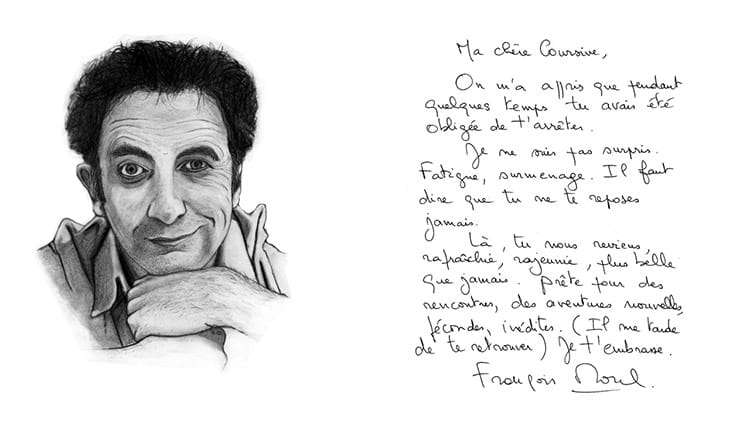 Ma chère Coursive,
On m'a appris que pendant
quelques temps tu avais été
obligée de t'arrêter.
Je ne suis pas surpris.
Fatigue, surmenage. Il faut
dire que tu ne te reposes
jamais.
Là, tu nous reviens,
rafraîchie, rajeunie, plus belle
que jamais. Prête pour des
rencontres, des aventures nouvelles,
fécondes, inédites. (Il me tarde
de te retrouver) Je t'embrasse.
François Morel.